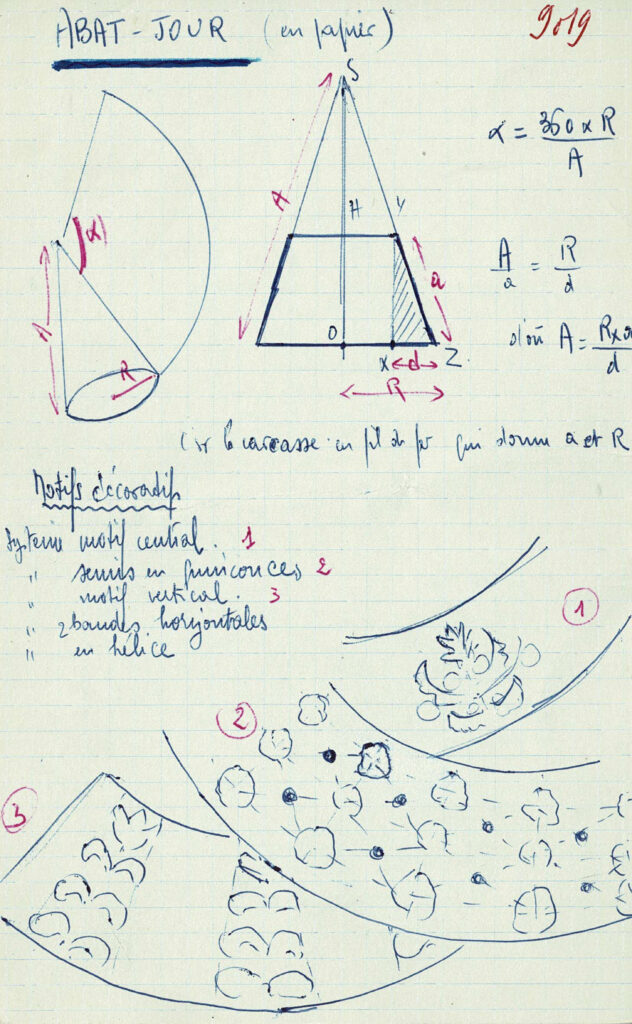 ABAT-JOUR (en papier)
9019
S
α = 360 x R / A
A
H
Y
α
A / a = R / d
a
A
d'où A = R x a / d
O
X
d
Z
R
R
la carcasse en fil de fer qui donne a et R
Motifs décoratifs
Système motif central. 1
" semis en quinconces 2
" motif vertical. 3
" 2 bandes horizontales
" en hélice
1
2
3